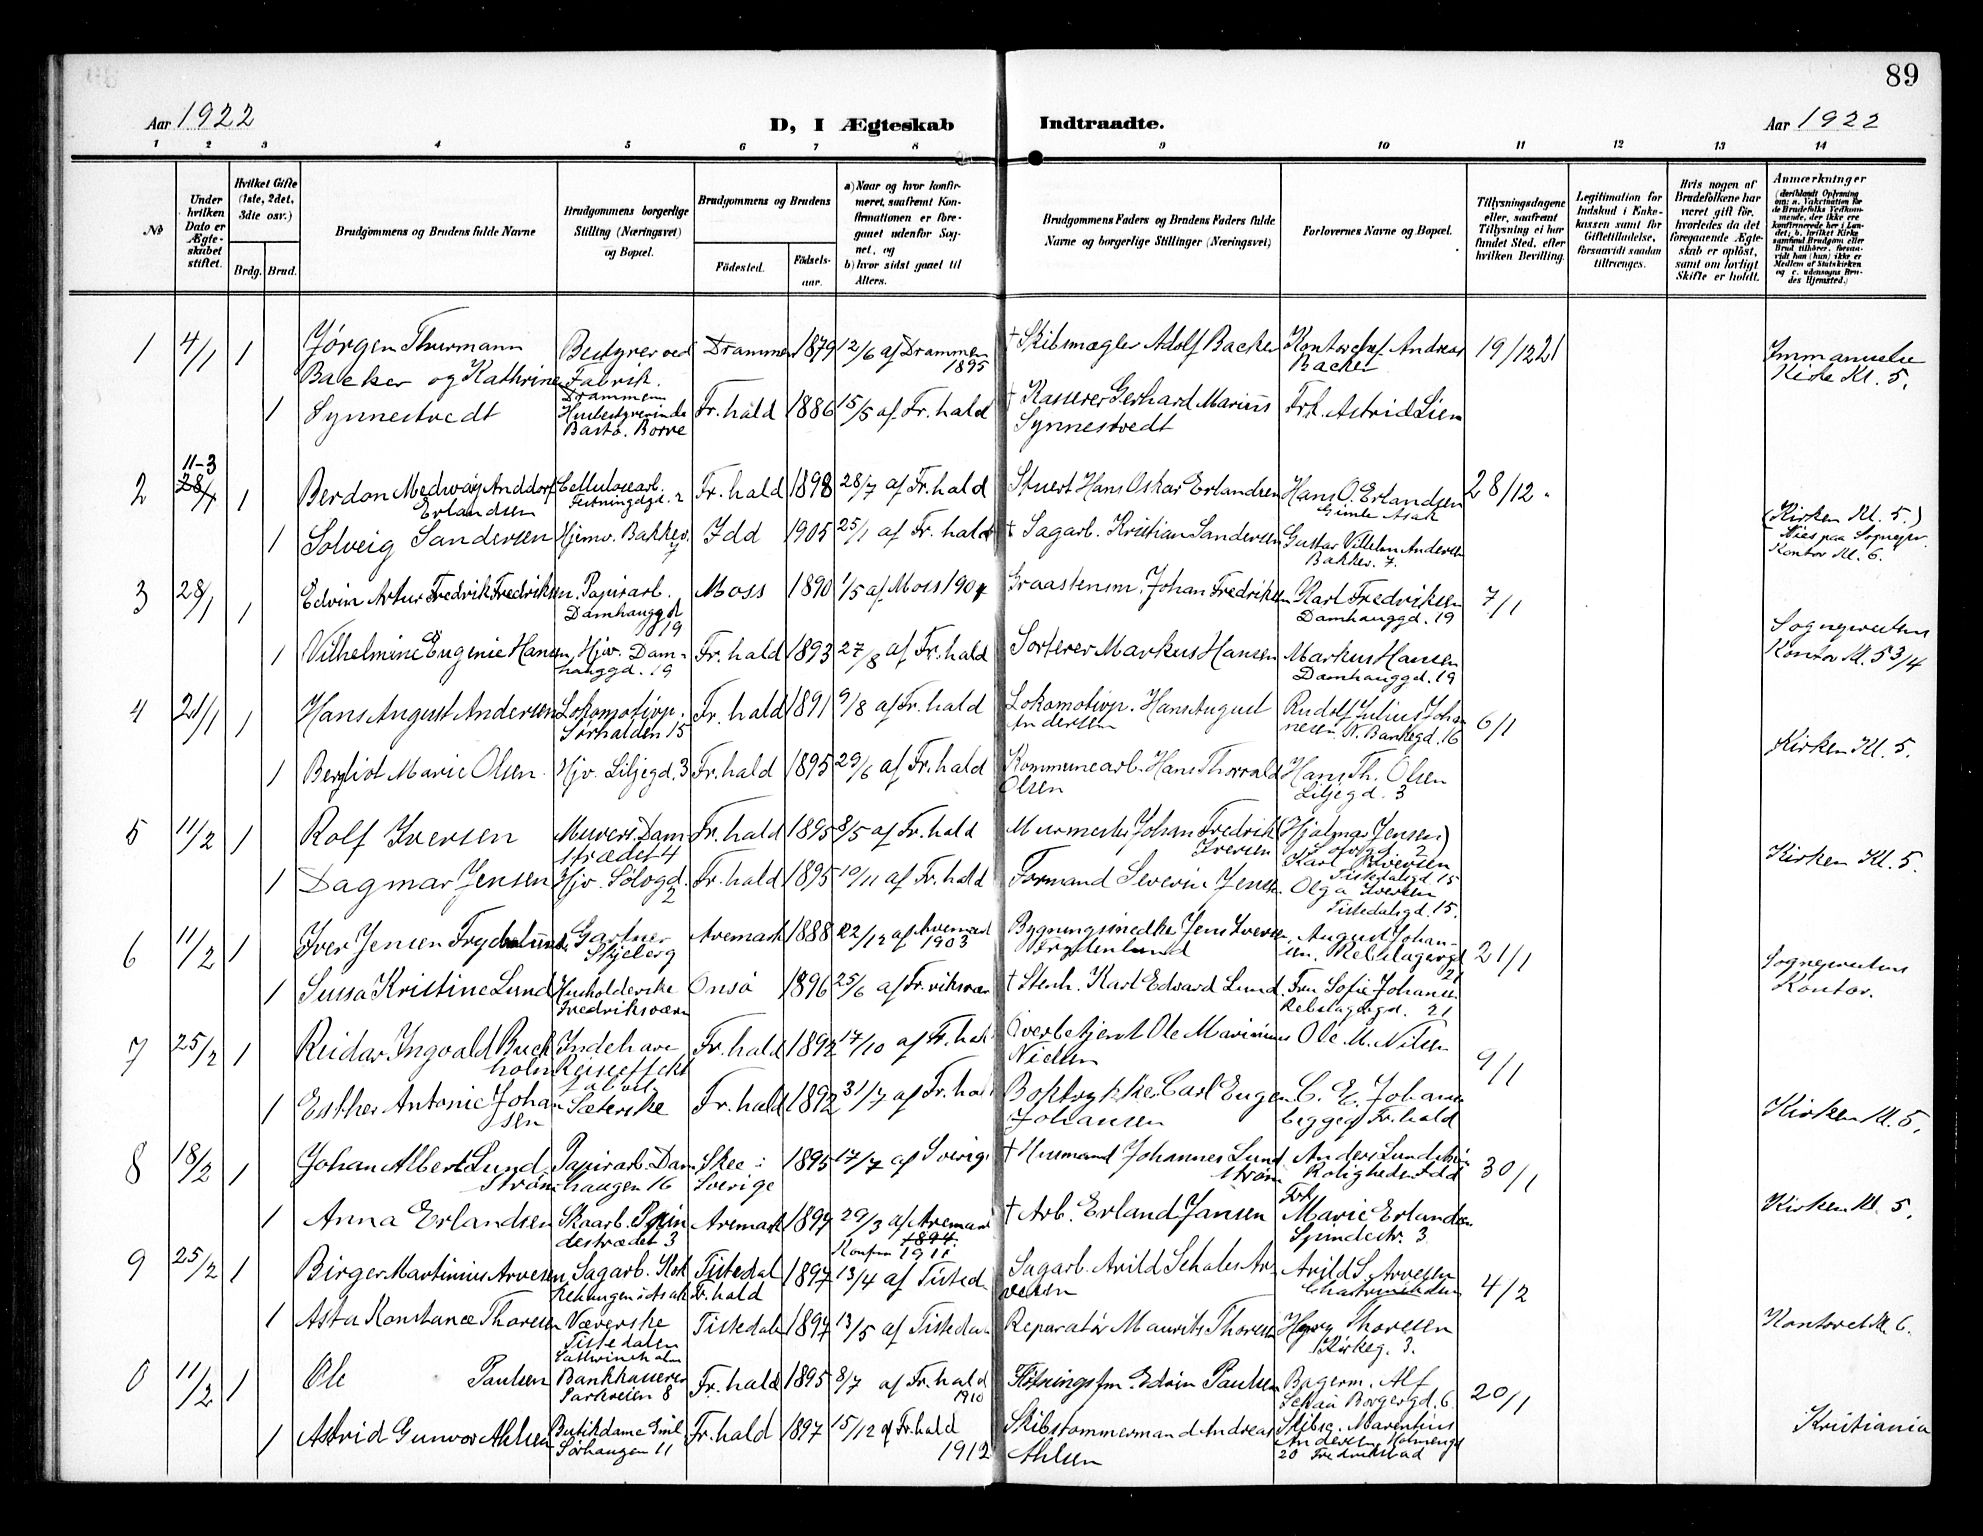 89
Aar 1922
D, I Ægteskab Indtraadte.
Aar 1922
1 2 3 4 5 6 7 8 9 10 11 12 13 14
No
Under hvilken Dato er Ægteskabet stiftet.
Hvilket Gifte (1ste, 2det, 3die osv.)
Brdg. Brud.
Brudgommens og Brudens fulde Navne
Brudgommens borgerlige Stilling (Næringsvei) og Bopæl.
Brudgommens og Brudens
Fødested. Fødselsaar.
a) Naar og hvor konfirmeret, saafremt Konfirmationen er foregaaet udenfor Sognet, og
b) hvor sidst gaaet til Alters.
Brudgommens Faders og Brudens Faders fulde Navne og borgerlige Stillinger (Næringsvei)
Forlovernes Navne og Bopæl.
Tillysningsdagene eller, saafremt Tillysning ei har fundet Sted, efter hvilken Bevilling.
Legitimation for Indskud i Enkekassen samt for Giftetilladelse, forsaavidt saadan tiltrænges.
Hvis nogen af Brudefolkene har været gift før, hvorledes da det foregaaende Ægteskab er opløst, samt om lovligt Skifte er holdt.
Anmærkninger
1 4/1 1 Jørgen Thurmann Backer og Kathrine Bestyrer ved Fabrik. Drammen Drammen 1879 12/6 af Drammen 1895 † Skibsmægler Adolf Backer Kontorchef Andreas Backer 19/12 21 Immanuels Kirke Kl. 5.
1 Synnestvedt Husbestyrerinde Bastø. Borre Fr.hald 1886 15/5 af Fr.hald † Kasserer Gerhard Marius Synnestvedt Frk. Astrid Lien
2 11-3 28/1 1 Berdon Medwøy Anddorf Erlandsen Cellulosearb. Festningsgt. 2 Fr.hald 1898 28/7 af Fr.hald Stuert Hans Oskar Erlandsen Hans O. Erlandsen Gimle Asak 28/12
1 Solveig Sandersen Hjemv. Bakkev. 7 Idd 1905 25/1 af Fr.hald † Sagarb. Kristian Sandersen Gustav Villelm Andersen Bakkev. 7. (Kirken Kl. 5.) Vies paa Sognepr. Kontor Kl. 6.
3 28/1 1 Edvin Artur Fredrik Fredriksen Papirarb. Damhauggd 19 Moss 1890 1/5 af Moss 1904 Graastensm. Johan Fredriksen Karl Fredriksen Damhauggd. 19 7/1
1 Vilhelmine Eugenie Hansen Hjv. Damhauggd. 19 Fr.hald 1893 27/8 af Fr.hald Sorterer Markus Hansen Markus Hansen Damhauggd. 19 Sogneprestens Kontor Kl. 5 3/4
4 21/1 1 Hans August Andersen Lokomotivp. Sørhalden 15 Fr.hald 1891 9/8 af Fr.hald Lokomotivp. Hans August Andersen Rudolf Julius Johannesen N. Bankegd. 16 6/1
1 Bergliot Marie Olsen Hjv. Liljegd. 3 Fr.hald 1895 29/6 af Fr.hald Kommunearb. Hans Thorvald Olsen Hans Th. Olsen Liljegd. 3 Kirken Kl. 5.
5 11/2 1 Rolf Iversen Murers. Damstrædet 4 Fr.hald 1895 8/5 af Fr.hald Murmester Johan Fredrik Iversen (Hjalmar Jensen) Karl Iversen Tistedalsgd 15
1 Dagmar Jensen Hjv. Sologd. 2 Fr.hald 1895 19/11 af Fr.hald Formand Severin Jensen Olga Iversen Tistedalsgd. 15. Kirken Kl. 5.
6 11/2 1 Iver Jensen Gartner Skjeberg Aremark 1888 22/12 af Aremark 1903 Bygningssnedker Jens Iversen August Johansen. Rebslagergd 21 21/1
1 Kristine Lund Husholderske Fredriksværn Onsø 1896 25/6 af Fr.viksværn † Stenh. Karl Edvard Lund Fru Sofie Johansen Rebslagergd. 21 Sogneprestens Kontor.
7 25/2 1 Reidar Ingvald Buckholm Indehaver Reiseeffekt Fr.hald 1892 17/10 af Fr.hald Overbetjent Ole Marinius Nielsen Ole M. Nilsen 9/1
1 Esther Antonie Johansen Sæterske Fr.hald 1892 31/7 af Fr.hald Boktrykker Carl Eugen Johansen C. E. Johansen begge af Fr.hald Kirken Kl. 5.
8 18/2 1 Johan Albert Lundstrøm Papirarb. Damhaugen 16 Skee i Sverige 1895 17/7 af Sverige † Husmand Johannes Lundstrøm Anders Lundstrøm Roligheden Idd 30/1
1 Anna Erlandsen Skaarb. Spindestrædet 3 Aremark 1899 29/3 af Aremark 1894. Konfirm 1911 † Arb. Erland Jansen Frk. Marie Erlandsen Spindestr. 3 Kirken Kl. 5.
9 25/2 1 Birger Martinius Arvesen Sagarb. i Asak Tistedal Fr.hald 1897 13/4 af Tistedalen Sagarb. Arild Schales Arvesen Arild S. Arvesen 4/2
1 Asta Konstance Thoresen Væverske Tistedalen Tistedalen 1897 13/5 af Tistedalen Reparatør Maurits Thoresen Thoresen Kirkeg. 3. Kontoret Kl. 6.
0 11/2 1 Ole Paulsen Bankkasserer Parkveien 8 Fr.hald 1895 8/7 af Fr.hald 1910 Fløtningsfm. Edvin Paulsen Bagerm. Alf Borgergd. 6. 20/1
1 Astrid Gunvor Ahlsen Butikdame Sørhaugen 11 Fr.hald 1897 15/12 af Fr.hald 1912 Skibstømmermand Andreas Ahlsen Marentius Andersen 20 Fredrikstad Kristiania